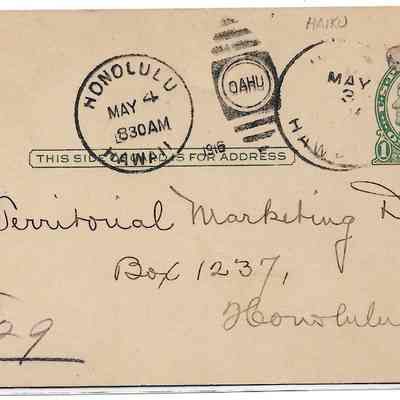 HAIKU
HONOLULU
MAY 4
830AM
HAWAII
OAHU
1916
MAY
2
HAW
1
THIS SIDE OF CARD IS FOR ADDRESS
Territorial Marketing D
Box 1237,
Honolulu
29